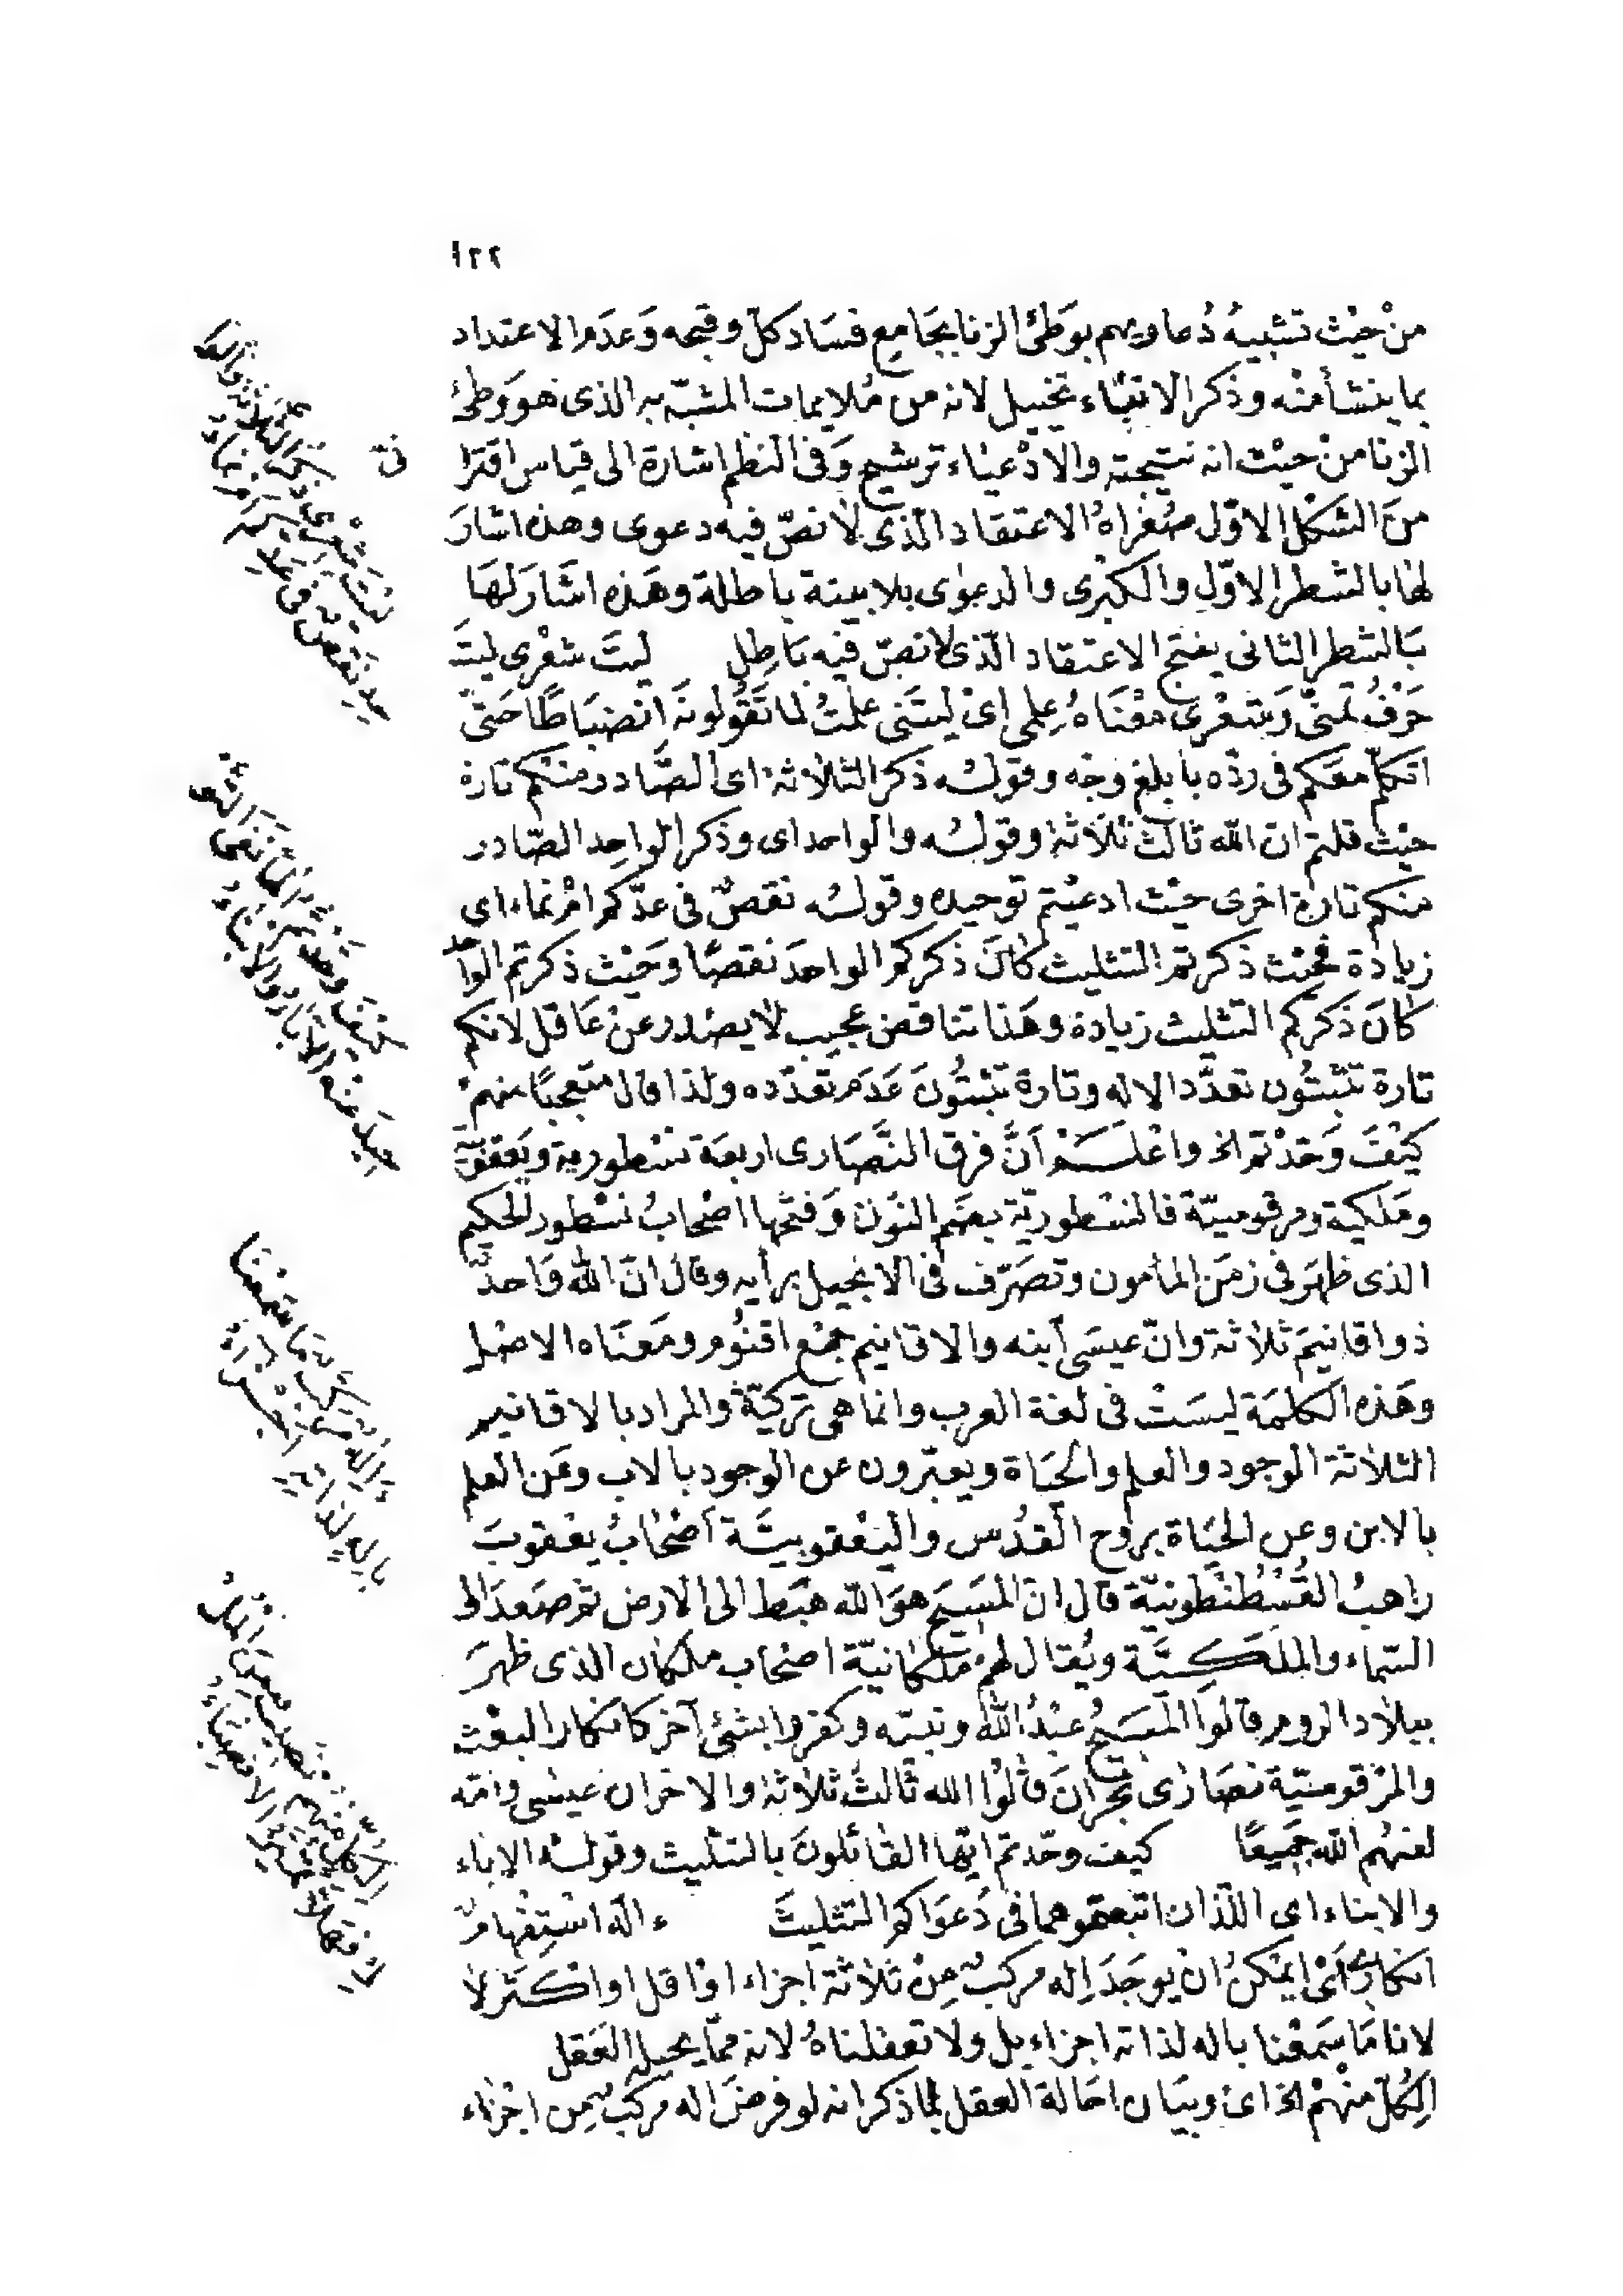 ١٢٢
منْ حيْث تشبيهُ دُعاويهم بوَطئ الزنا بجَامِع فسَاد كلّ وقبحه وَعدَم الاعتداد
بما ينشأ منْه وذكر الانبَاء تخييل لانه من مُلايمات المشبّه به الذى هو وَطئ
الزنا منْ حيْث انه نتيجته والادْعيَاء ترشيح وَفى النظم اشارة الى قياس اقترا
نىّ
منَ الشكْل الاوّل صُغْراهُ الاعتقاد الّذى لا نصّ فيه دعوى وهذه اشارَ
لهَا بالشطر الاوّل والكبْرى والدعْوى بلا بينة باطلة وهَذه اشَارَ لهَا
بَالشطر الثانى ينتج الاعتقاد الّذى لا نصّ فيْه بَاطِل ليتَ شعْرى ليتَ
حَرْفُ تمنّ وَشعْرى معْنَاهُ عِلمى اىْ ليتَنى علمْتُ لما تَقُولونَه انضبَاطًا حَتّى
اتكلّم معَكم فى ردّه بابلغ وَجْه وقولُه ذكر الثلاثة اى الصَّادر منكم تارة
حيْث قلتم ان الله ثالث ثلَاثة وقولُه والواحد اى وذكر الواحِد الصّادر
منكم تارة اخرى حيْث ادعيْتم توحيده وقولُه نقصٌ فى عدّكم امْ نماء اى
زيادة فحيْث ذكرتم التثليث كانَ ذكركم الواحدَ نقصًا وحَيْث ذكرتم الواحد
كانَ ذكركم التثليث زيادة وهَذا تناقض عجيب لا يصْدر عنْ عَاقل لانكم
تارة تثبتُون تعدّد الاله وتارة تثبتُونَ عَدَم تعدّده ولذا قال متعجبًا منهمْ
كيْفَ وَحّدْتم الخ واعْلَمْ اَنَّ فرق النَّصَارى اربعَة نسْطورية ويَعقوبيّة
ومَلكية ومرقوميّة فالنسْطوريّة بضَم النّون وَفتحها اصْحابُ نسْطور الحكيم
الذى ظهَر فى زمَن المأمون وتصَرّف فى الانجيل برأيه وقال انّ الله وَاحدٌ
ذو اقانيمَ ثلاثة وانّ عيسَى ابنه والاقانيم جمْع اقنُوم ومَعنَاه الاصْل
وهَذه الكلمَة ليسَتْ فى لغة العرب وانما هى تركيّة والمراد بالاقانيم
الثلاثة الوجود والعلم والحيَاة ويعبّرون عن الوجود بالاب وعَن العلم
بالابن وعن الحيَاة بروح القدُس واليَعْقوبيَّة اَصْحَابُ يعْقوبَ
راهبُ القُسْطُنْطونيّة قال ان المَسيَح هوَ الله هبَط الى الارض ثم صَعدَ الى
السّماء والملَكيَّة ويُقال لهمْ مَلكانيّة اصْحاب ملكان الذى ظهَرَ
ببلاد الروم قالوا المَسيحُ عبْدُ الله ونبيّه وكفروا بشئ آخر كانكار البعْث
والمرْقوميّة نصَارَى نجْرانَ قالُوا الله ثالثُ ثلاثة والاخران عيسى وامّه
لعنهُم الله جَميعًا كيف وحّدتم ايّها القَائلونَ بالتثليث وقولُه الاباء
والابناء اى اللّذان اتبعتموهما فى دَعوَاكم التثليثَ ءاله اسْتِفْهامٌ
انكارىّ اَىْ ايمْكنُ ان يوجَدَ اله مركبٌ مِنْ ثلاثة اجزاء اوْ اقل او اكثر لا
لانا مَا سَمعْنا باله لذاته اجزاء بل ولا تعقلناهُ لانه ممّا يحيله العَقل
الِكلّ منْهمْ الخ اىْ وبيَان احَالة العقل لما ذكر انه لو فرضَ اله مركبٌ مِن اجْزاء
ليْتَ شعْرى ذكر الثلاثة والوا
حِدِ نَقصٌ فى عدّكم ام نماءُ
كيْفَ وحّدْتم الهًا نفى التو
حيدَ عنْه الآباءُ والابناءُ
ءاله مركّب ما سَمعْنا
باِلهٍ لذاته اجْزاءُ
الكلّ منهم نصيبٌ من الملْك
فهَلّا تميّز الانصِبَاءُ